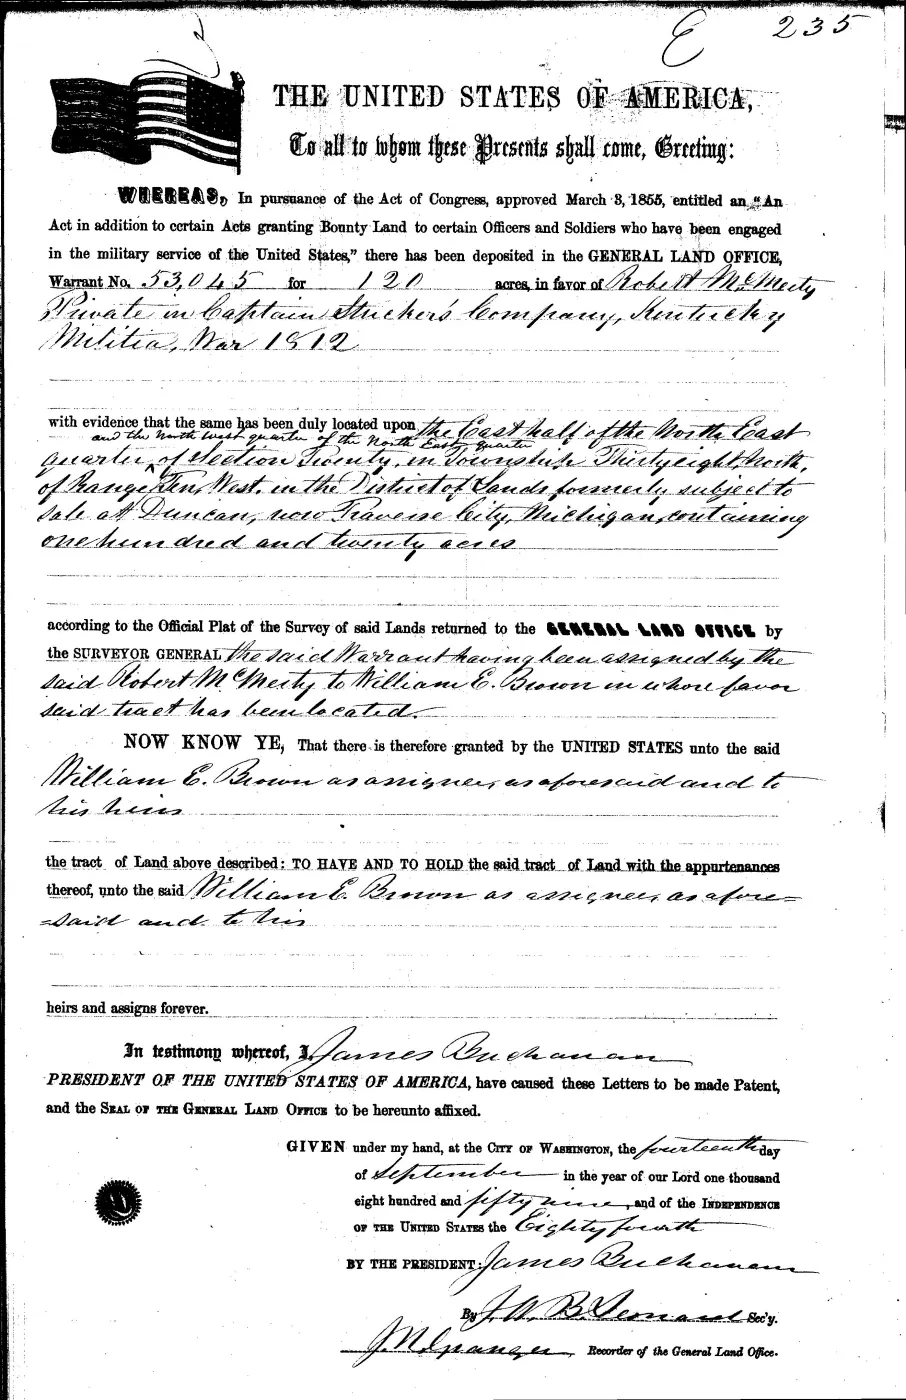 E 235
THE UNITED STATES OF AMERICA,
To all to whom these Presents shall come, Greeting:
WHEREAS, In pursuance of the Act of Congress, approved March 3, 1855, entitled an "An
Act in addition to certain Acts granting Bounty Land to certain Officers and Soldiers who have been engaged
in the military service of the United States," there has been deposited in the GENERAL LAND OFFICE,
Warrant No. 53,045 for 120 acres, in favor of Robert McMerty
Private in Captain Stucker's Company, Kentucky
Militia, War 1812
with evidence that the same has been duly located upon the East half of the North East
and the North West quarter of the North East quarter
quarter, of Section Twenty, in Township Thirty eight, North,
of Range Ten, West, in the District of Lands formerly subject to
sale at Duncan, now Traverse City, Michigan, containing
one hundred and twenty acres
according to the Official Plat of the Survey of said Lands returned to the GENERAL LAND OFFICE by
the SURVEYOR GENERAL the said Warrant having been assigned by the
said Robert McMerty to William E. Brown in whose favor
said tract has been located.
NOW KNOW YE, That there is therefore granted by the UNITED STATES unto the said
William E. Brown as assignee, as aforesaid and to
his heirs
the tract of Land above described: TO HAVE AND TO HOLD the said tract of Land with the appurtenances
thereof, unto the said William E. Brown as assignee, as afore=
=said and to his
heirs and assigns forever.
In testimony whereof, I, James Buchanan
PRESIDENT OF THE UNITED STATES OF AMERICA, have caused these Letters to be made Patent,
and the SEAL OF THE GENERAL LAND OFFICE to be hereunto affixed.
GIVEN under my hand, at the CITY OF WASHINGTON, the fourteenth day
of September in the year of our Lord one thousand
eight hundred and fifty nine, and of the INDEPENDENCE
OF THE UNITED STATES the Eighty fourth
BY THE PRESIDENT: James Buchanan
By J. A. B. Leonard Sec'y.
J. N. Granger, Recorder of the General Land Office.